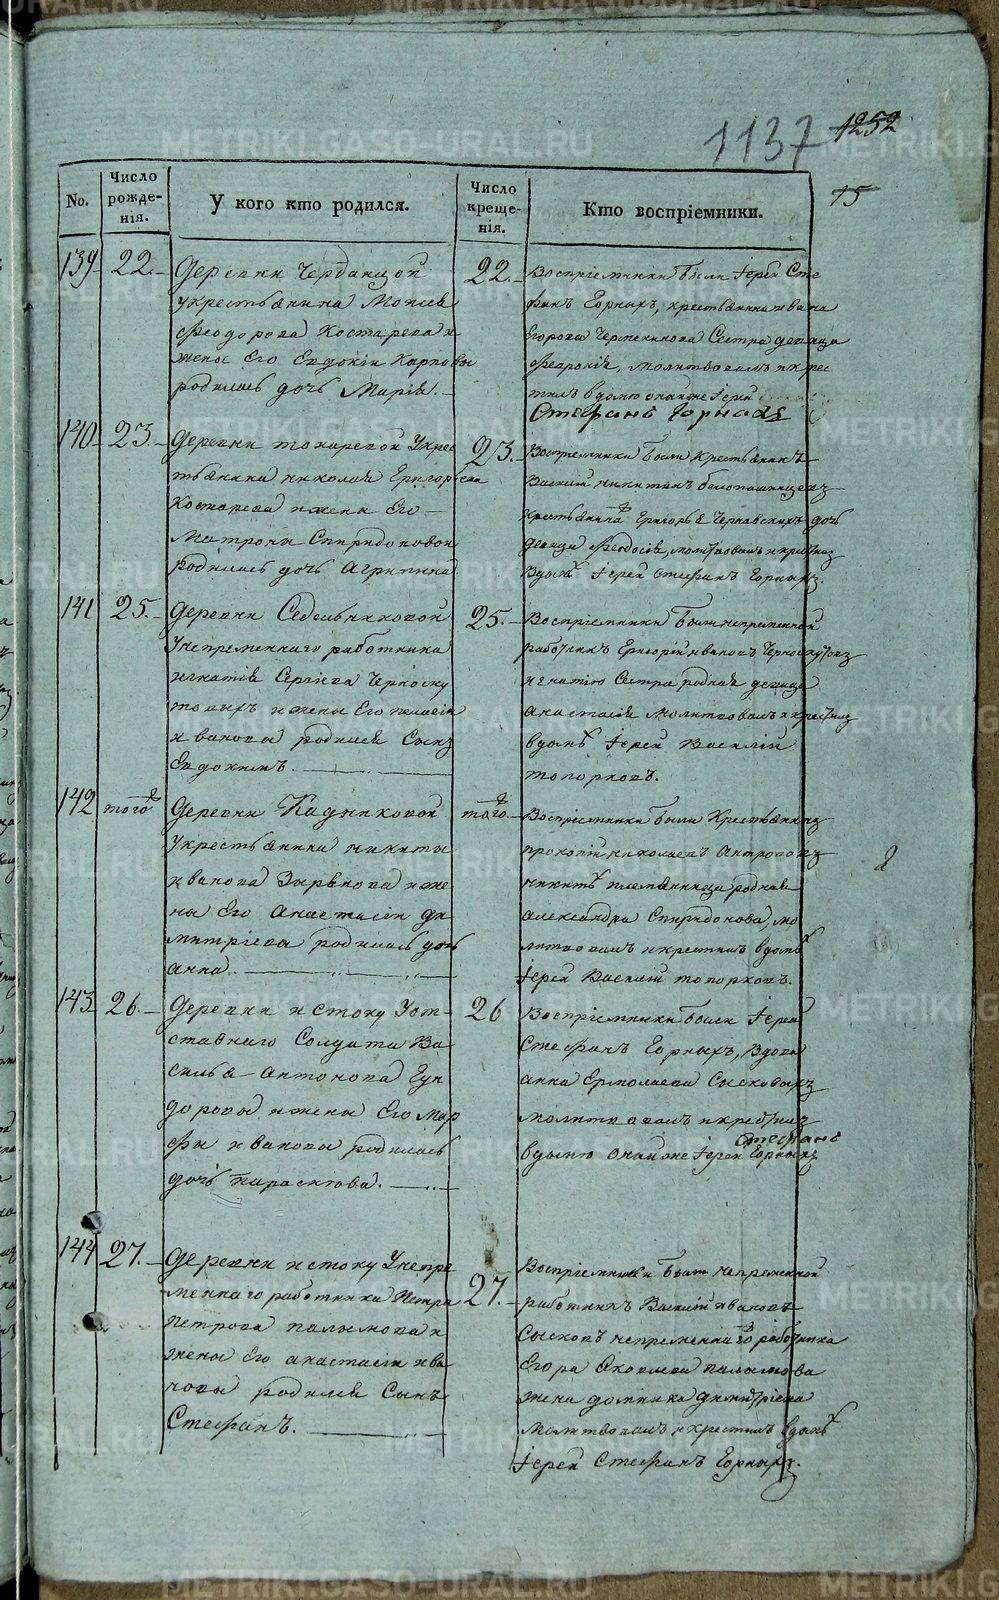 1137 1252
15
No. Число рожде-нія. У кого кто родился. Число креще-нія. Кто воспріемники.
139 22. Деревни Черданцой
у крестьянина Моисея
Феодорова Костарева и
жены Его Евдокіи Карповы
родилась дочь Марія.
22. Воспріемники были Іерей Сте
фанъ Горныхъ, крестьянина Ивана
Егорова Сестра девица
Февронія, молитвовалъ и крес
тилъ в дому онай же Іерей
Стефанъ Горныхъ
140 23. Деревни токаревой У крес
тьянина Николая Григорьева
Костарева и жены Его
Матроны Спиридоновой
родилась дочь Агрипина
23. Воспріемники были крестьянинъ
Василій Никитинъ Белопашинцевъ
крестьянина Григорья Чернавскихъ дочь
девица Феодосія, молитвовалъ и крестилъ
в домѣ Іерей Стефанъ Горныхъ.
141 25. Деревни Седельниковой
У непременнаго работника
Игнатія Сергіева Черноску
товыхъ и жены Его Пелагіи
Ивановы родился Сынъ
Евдокимъ.
25. Воспріемники были непременной
работникъ Григорій Ивановъ Черноскутовъ
Игнатію Сестра родная девица
Анастасія молитвовалъ и крестилъ
в домѣ Іерей Василій
топорковъ.
142 того Деревни Кадниковой
У крестьянина Никиты
Иванова Зырянова и же
ны Его Анастасіи Ди
митріевы родилась дочь
анна.
того. Воспріемники были Крестьянинъ
прокопій Николаевъ Антроповъ
Никитѣ племянница родная
александра Спиридонова, мо
литвовалъ и крестилъ в домѣ
Іерей Василій топорковъ.
143 26. Деревни истоку У от-
ставнаго Солдата Ва
силья Антонова Гун
дорова и жены Его Мар
фы Ивановы родилась
дочь параскюва.
26 Воспріемники были Іерей
Стефанъ Горныхъ, Вдова
анна Ермолаева Сысковыхъ
молитвовалъ и крестилъ
в дому онай же Іерей Стефанъ Горныхъ
144 27. Деревни истоку У непре
меннаго работника Петра
Петрова палымова и
жены Его анастасіи Ива
новы родился Сынъ
Стефанъ.
27. Воспріемники были непременной
работникъ Василій Ивановъ
Сысковъ непременнаго работника
Егора Яковлева палымова
жена домника Димитріева
Молитвовалъ и крестилъ в домѣ
Іерей Стефанъ Горныхъ.
METRIKI.GASO-URAL.RU